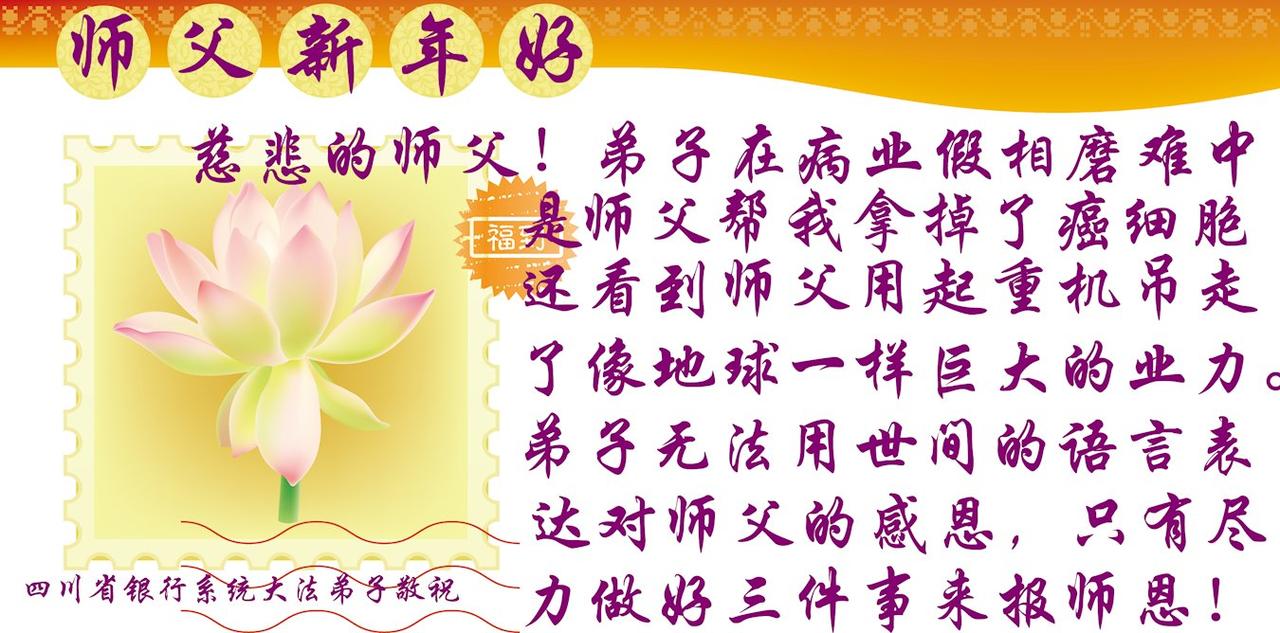 师父新年好
慈悲的师父！弟子在病业假相磨难中
是师父帮我拿掉了癌细胞
还看到师父用起重机吊走
了像地球一样巨大的业力。
弟子无法用世间的语言表
达对师父的感恩，只有尽
力做好三件事来报师恩！
福到
四川省银行系统大法弟子敬祝